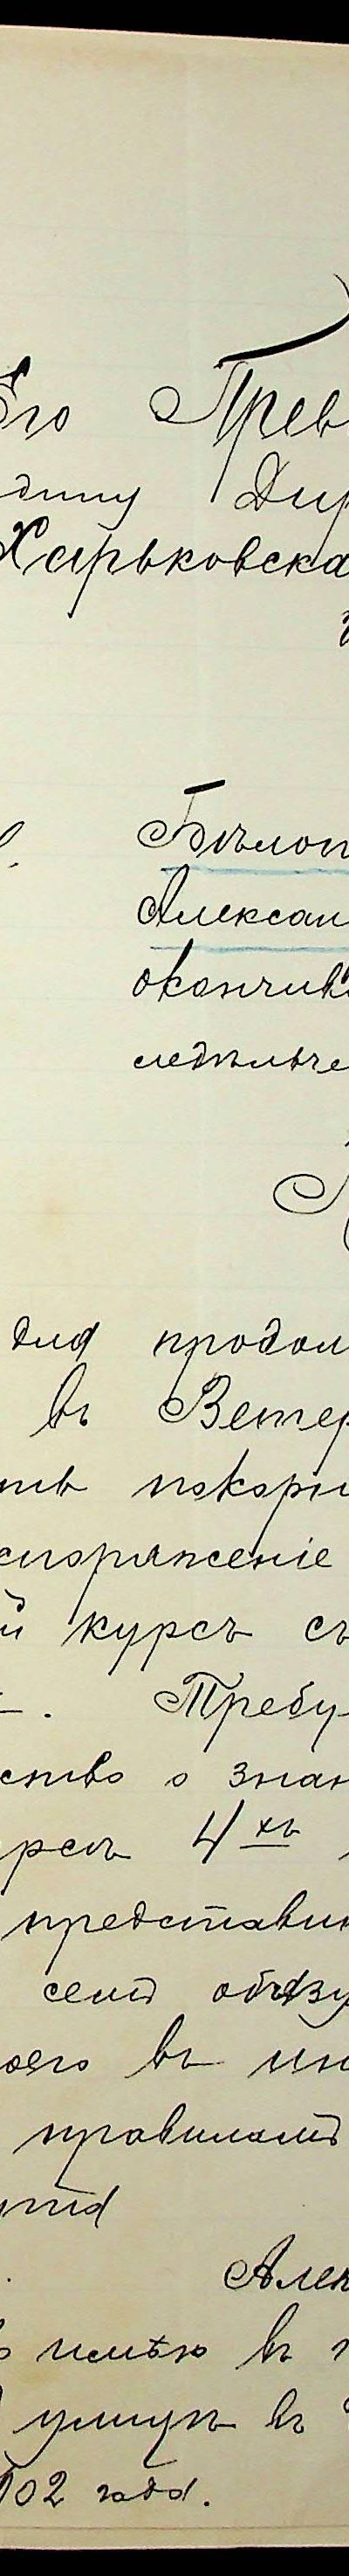 Его Прев
дину Дир
Харьковска
Бѣлоп
Алексан
окончивш
для продол
въ Ветер
покорн
споряженіе
й курсъ съ
Требу
ство о знан
рсъ 4хъ
представи
семъ обязу
оего въ ин
правиламъ
Алек
имѣю въ
улицѣ въ
902 года.